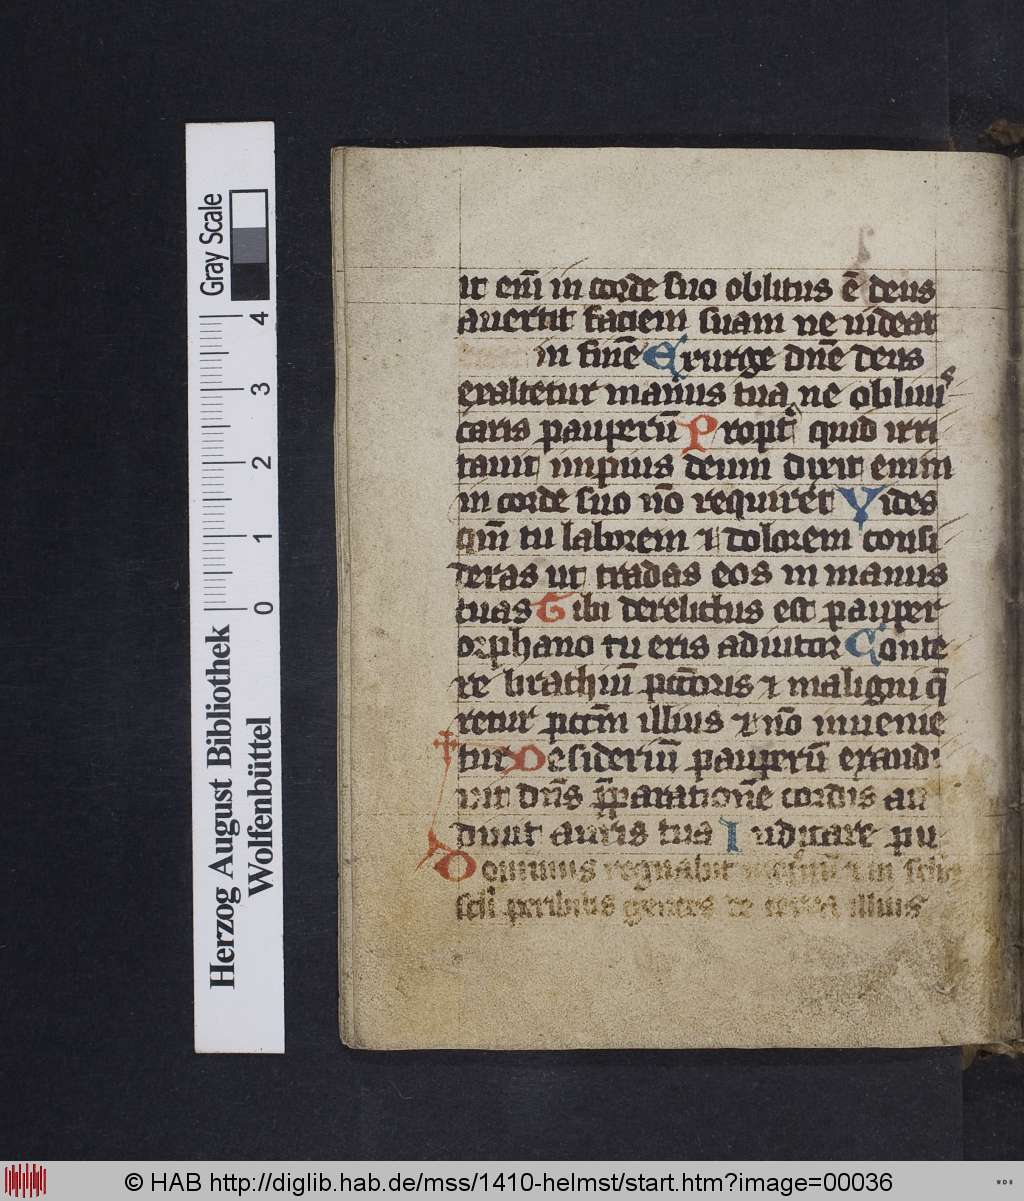 Gray Scale
4
3
2
1
0
Herzog August Bibliothek
Wolfenbüttel
it em̄ in corde suo oblitus ē deus
auertit faciem suam ne uideat
in finē Exurge dn̄e deus
exaltetur manus tua ne obliui
caris pauperū Propt̾ quid irri
tauit impius deum dixit enim
in corde suo nō requiret Vides
qm̄ tu laborem ⁊ dolorem consi
deras ut tradas eos in manus
tuas Tibi derelictus est pauper
orphano tu eris adiutor Conte
re brachiū pcc̄oris ⁊ maligni q̄
retur pccm̄ illius ⁊ nō inuenie
tur Desideriū pauperū exaudi
uit dn̄s p̄paratiōnē cordis au
diuit auris tua Iudicare pu
Dominus regnabit ⁊ in
peribitis gentes de terra illius
© HAB http://diglib.hab.de/mss/1410-helmst/start.htm?image=00036